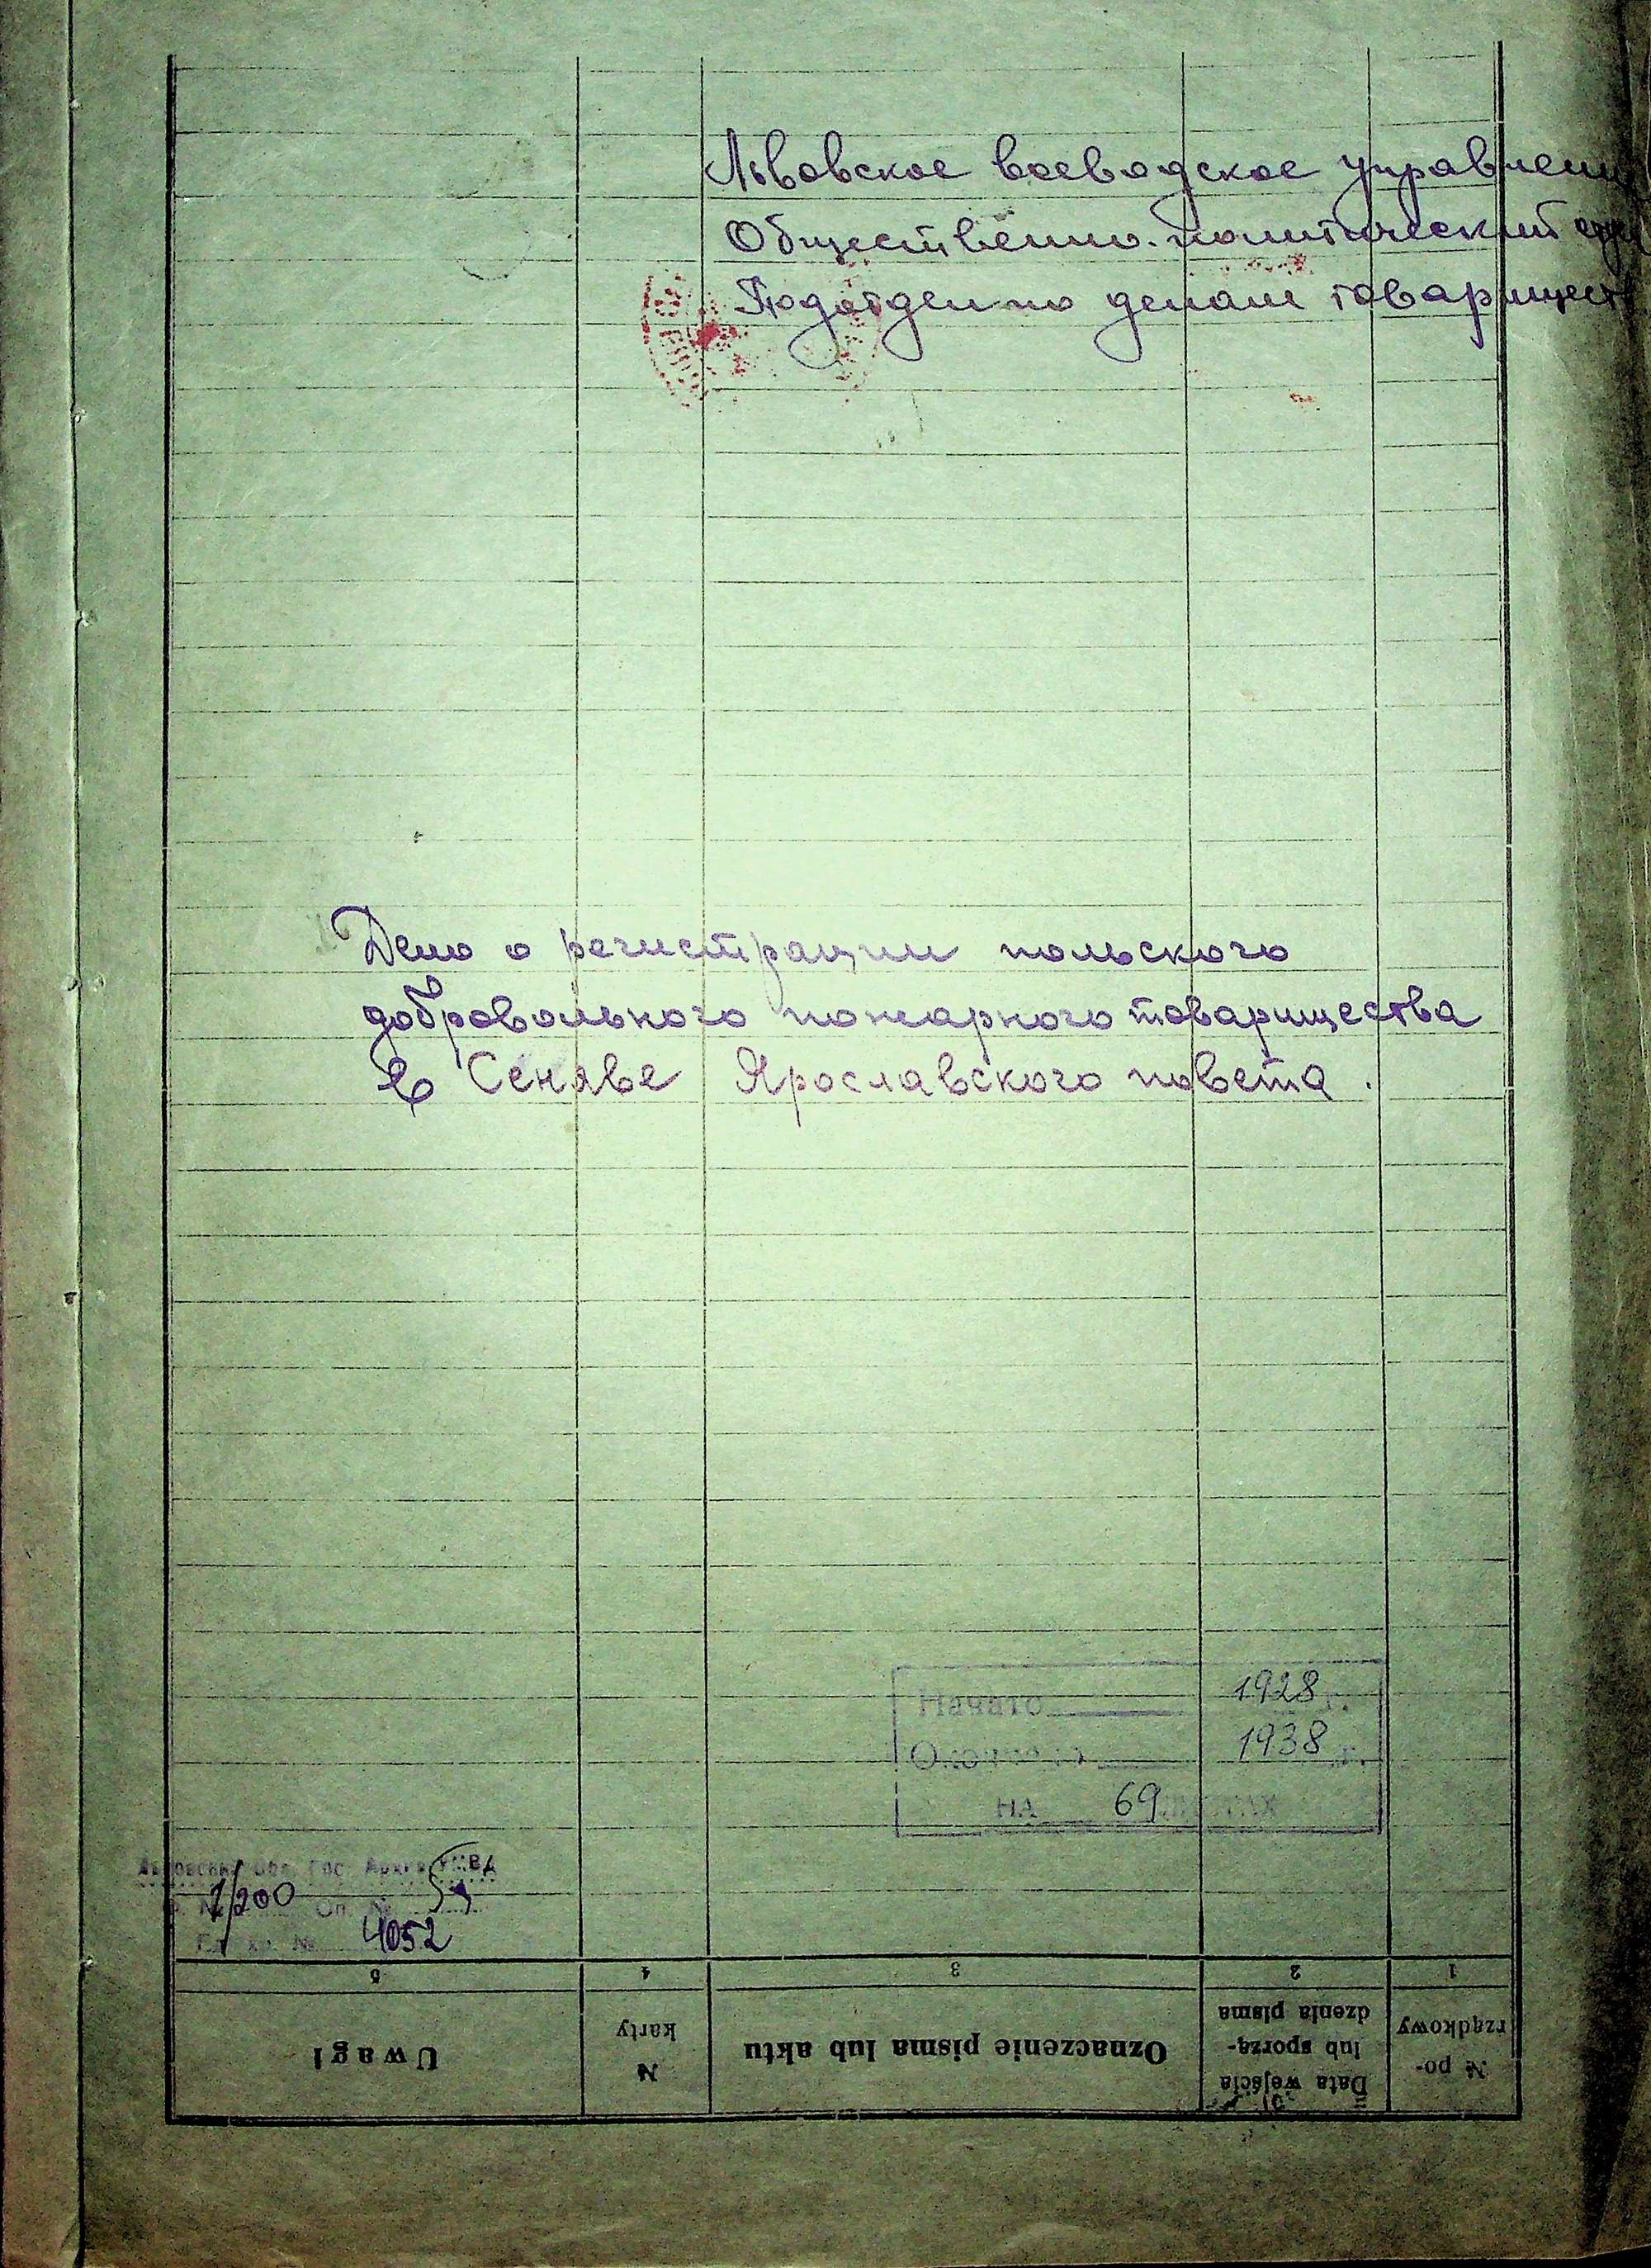 Львовское воеводское управлени
Общественно-политический
Подотдел по делам товарищест
Дело о регистрации польского
добровольного пожарного товарищества
в Сеняве Ярославского повета.
Начато 1928 г.
Окончено 1938 г.
НА 69 листах
Львовский Обл. Гос. Архив УМВД
1/200 Оп. №
Ед. хр. № 4052
5 4 3 2 1
Uwagi
№ karty
Oznaczenie pisma lub aktu
Data wejścia
lub sporzą-
dzenia pisma
№ po-
rządkowy